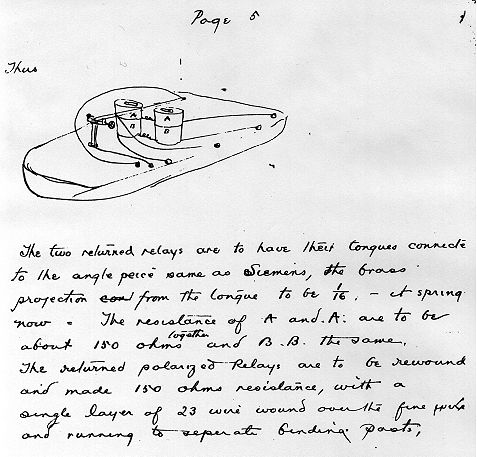 Page 5
Thus
A
B
A
B
The two returned relays are to have their tongues connecte
to the angle peice same as Siemens, the brass
projection from the tongue to be 1/16. – it spring
now. The resistance of A and A. are to be
about 150 ohms together and B.B. the same.
The returned polarized Relays are to be rewound
and made 150 ohms resistance, with a
single layer of 23 wire wound over the fine wire
and running to seperate binding posts,